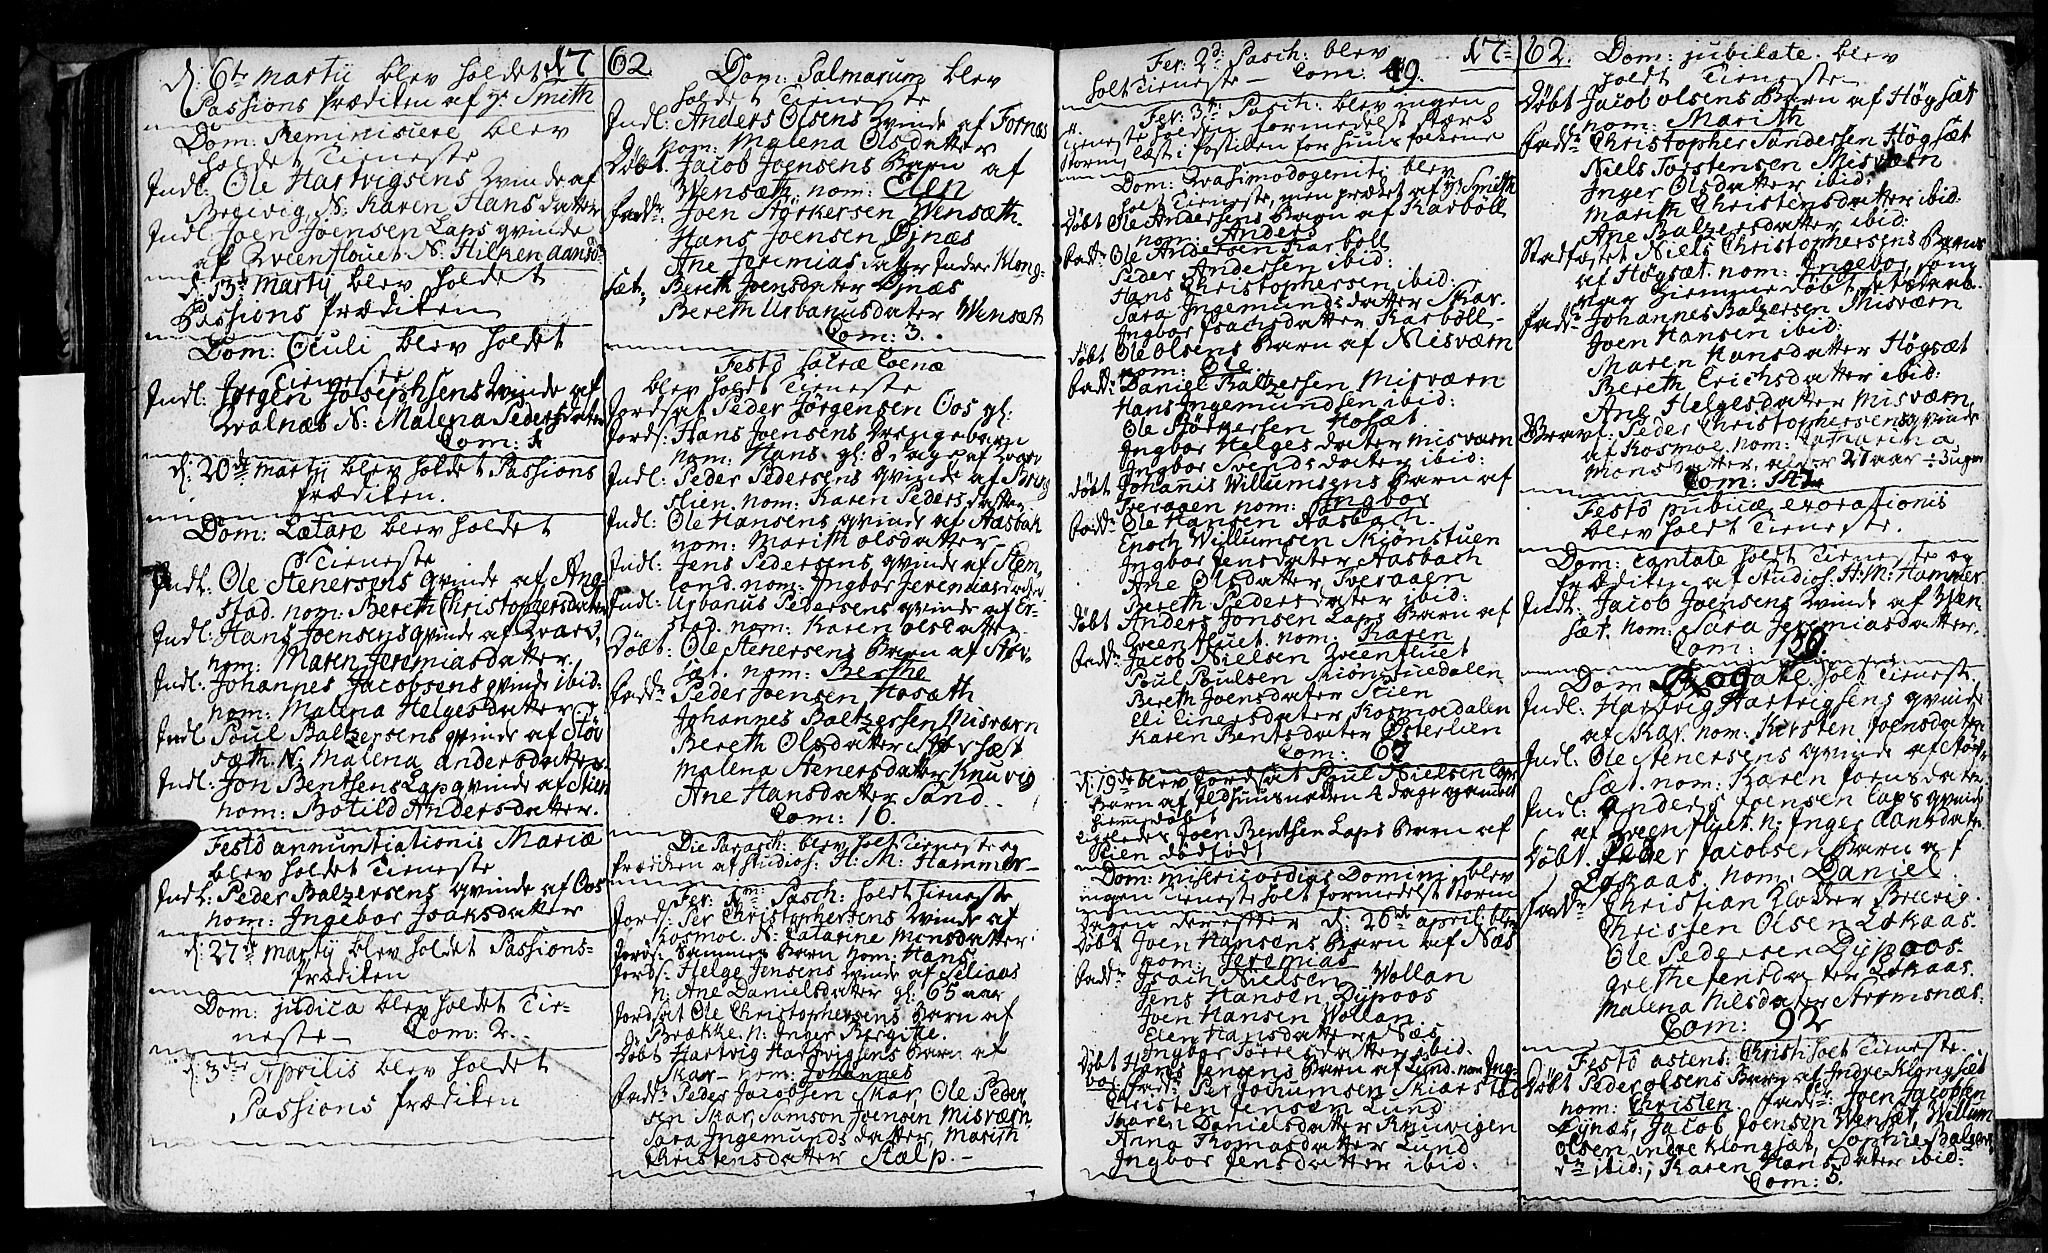 17 62
d: 6te martij blev holdet
Passions Prædiken af Hr Smith
Dom: Reminiscere blev
holdet Tieneste
Indl: Ole Hartvigsens qvinde af
Breivig N: Karen Hansdatter
Indl: Joen Joensens Laps qvinde
af Qveenflouet N: Hilken
d: 13de martij blev holdet
Passions Prædiken
Dom: Oculi blev holdet
Tieneste
Indl: Jørgen Josephsens qvinde af
Walnæs N: Malena Pedersdatter
Com: 1
d: 20de martij blev holdet Passions
Prædiken.
Dom: Lætare blev holdet
Tieneste
Indl: Ole Stenersens qvinde af
stad. nom: Bereth Christophersdatter
Indl: Hans Joensens qvinde af
nom: Maren Jeremiasdatter.
Indl: Johannes Jacobsens qvinde ibid:
nom: Malena Helgesdatter
Indl: Poul Baltzersens qvinde af Stör
sæth. N: Malena Andersdatter
Indl: Jon Benthsens Lap qvinde af Stien
nom: Botild Andersdatter.
Festo annuntiationis Mariæ
blev holdet Tieneste
Indl: Peder Balzersens qvinde af Oos
nom: Ingebor Isaksdatter
d: 27de martij blev holdet Passions-
Prædiken
Dom: judica blev holdet Tie-
neste — Com: 2.
d: 3die Aprilis blev holdet
Passions Prædiken
Dom: Palmarum blev
holdet Tieneste
Indl: Anders Olsens qvinde af Fornæs
nom: Malena Olsdatter
Döbt Jacob Joensens Barn af
Wensæth. nom: Elen
fadd: Joen Störkersen Wensæth.
Hans Joensen Öinæs
Ane Jeremiasdatter Indre Klong-
sæt; Bereth Joensdatter Öjnæs
Bereth Urbanusdatter Wensæt
Com: 3.
Festo sacræ Coenæ
blev holdt Tieneste
Jordsat Peder Jörgensen Oos gl:
Jords: Hans Joensens drengebarn
nom: Hans. gl: 8 dage af
Indl: Peder Pedersens qvinde af
lien. nom: Karen Pedersdatter
Indl: Ole Hansens qvinde af Aasbak
nom: Marith Olsdatter
Indl: Jens Pedersens qvinde af Sten
land. nom: Ingbor Jeremiasdatter
Indl: Urbanus Pedersens qvinde af
stad. nom: Karen Olsdatter
Döbt: Ole Stenersens Barn af Stör-
sæt. nom: Berthe
fadd: Peder Joensen Hosæth
Johannes Baltzersen Misværn
Bereth Olsdatter Störsæt
Malena Stenersdatter Knuvig
Ane Hansdatter Sand
Com: 10.
Die Parasch: blev holt Tieneste og
Prædiken af Studios: H: M: Hammer
Fer: 1ma Pasch: holdt Tieneste
Jords: Per Christophersens qvinde af
Kosmoe. N: Catarine Monsdatter
Jords: Sammes Barn nom: Hans
Jords: Helge Jensens qvinde af Seliaas
N: Ane Danielsdatter gl: 65 aar
Jordsat Ole Christophersens Barn af
Brække. N: Inger Bergitte.
Döbt Hartvig Hartvigsens Barn af
Skar — nom: Johannes
fadd: Peder Jacobsen Skar, Ole Peder
sen Skar, Samson Joensen Misværn,
Sara Ingemundsdatter, Marith
Christensdatter Stælp. —
17 62.
Fer: 2d: Pasch: blev
holt Tieneste — Com: 49.
Fer: 3tia Pasch: blev ingen
tieneste holden formedelst stærk
storm, læst i Postillen for huus folckene
Dom: Qvasimodogeniti blev
holt Tieneste, men prædiket af Hr Smith
Döbt Ole Andersens Barn af Karböll
nom: Anders
fadd: Ole Andersen Karböll
Peder Andersen ibid:
Hans Christophersen ibid:
Sara Ingemundsdatter Skar.
Ingbor Isachsdatter Karböll —
döbt Ole Olsens Barn af Misværn
nom: Ole.
fadd: Daniel Baltzersen Misværn
Hans Ingemundsen ibid:
Ole Störkersen Hosæt.
Ingbor Helgesdatter Misværn
Ingbor Svendsdatter ibid:
döbt Johannis Willumsens Barn af
Tveraaen nom: Ingbor
fadd: Ole Hansen Aasbach.
Enoch Willumsen Skiönstuen
Ingbor Jensdatter Aasbach
Ane Olsdatter Tveraaen
Bereth Pedersdatter ibid:
döbt Anders Jonsen Laps Barn af
Qveenfluet. nom: Karen
fadd: Jacob Nielsen Qveenfluet
Poul Poulsen Skiönstuedalen
Bereth Joensdatter Stien
Eli Einersdatter Kosmoedalen
Karen Bentsdatter Österlien
Com: 60
d: 19de blev Jordsat Poul Nielsen Laps
Barn af Ildhuusnæsen 2 dage gammelt
hiemmedöbt
ligeledes Joen Bentsen Laps Barn af
Stien dödfödt
Dom: Misericordias Domini blev
ingen Tieneste holt formedelst storm
Dagen derefter d: 26de april: blev
Döbt Joen Hansens Barn af Næs
nom: Jeremias
fadd: Isach Nielsen Wollan
Jens Hansen Dijpoos
Joen Hansen Wollan
Elen Hansdatter Næs
Ingbor Torresdatter ibid.
Döbt Hans Jensens Barn af Lund. nom: Ing-
bor fadd: Per Jochumsen Skiarstad
Christen Jensen Lund
Maren Danielsdatter Knuvigen
Anna Thomasdatter Lund
Ingbor Jensdatter ibid:
Dom: jubilate. blev
holdt Tieneste
Döbt Jacob Olsens Barn af Högsæt
nom: Marith
fadd: Christopher Sandersen Högsæt
Niels Torstensen Misværn
Inger Olsdatter ibid:
Marith Christensdatter ibid:
Ane Balzersdatter ibid:
Stadfæstet Niels Christophersens Barns
af Högsæt. nom: Ingebor, som
var hiemmedöbt
fadd: Johannes Balzersen Misværn
Joen Hansen ibid:
Maren Hansdatter Högsæt
Bereth Erichsdatter ibid:
Ane Helgesdatter Misværn
Gravf: Peder Christophersens qvinde
af Kosmoe. nom: Catharina
Monsdatter. alder 27 aar ÷ 3 uger
Com: 142
Festo publicæ exorationis
blev holdt Tieneste.
Dom: Cantate holdt Tieneste og
Prædiken af Studios: H: M: Hammer
Indl: Jacob Joensens qvinde af Wen
sæt. nom: Sara Jeremiasdatter.
Com: 130.
Dom Rogate. holt Tieneste.
Indl: Hartvig Hartvigsens qvinde
af Skar nom: Kirsten Joensdatter
Indl: Ole Stenersens qvinde af Stör-
sæt. nom: Karen Jonsdatter
Indl: Anders Joensen Laps qvinde
af Qveenfluet. N: Inger
Döbt. Peder Jacobsen Barn af
Lokaas nom: Daniel
fadd: Christian Klocker Brevig.
Christen Olsen Lokaas.
Ole Pedersen Dijpoos.
Grethe Jensdatter Lokaas.
Malena Nilsdatter Strømsnæs.
Com: 92
Festo astens: Christi holt Tieneste.
Döbt Peder Olsens Barn af Indre Klongsæt
nom: Christen fadd: Joen Jacobsen
Öjnæs, Jacob Joensen Wensæt, Willum
Olsen indre Klongsæt, Sophie Balzers
dr ibid:, Karen Hansdatter ibid:
Com: 5.